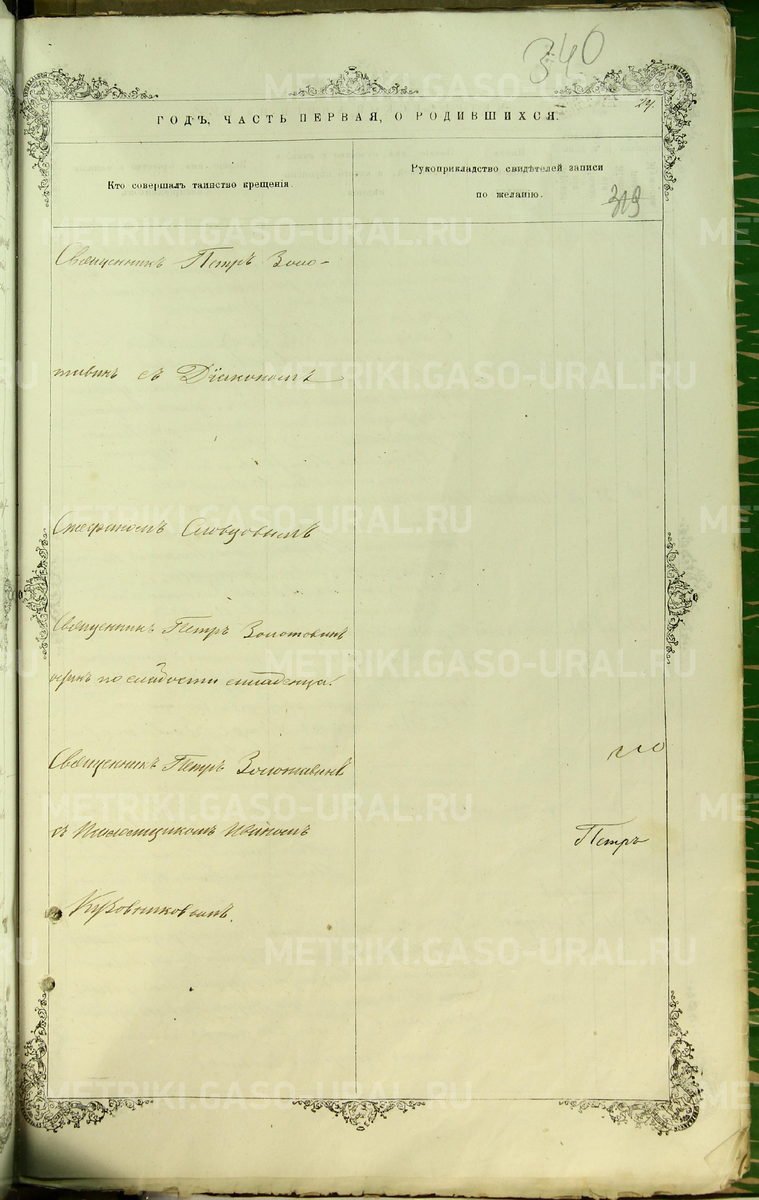 340
24.
ГОДЪ, ЧАСТЬ ПЕРВАЯ, О РОДИВШИХСЯ.
Кто совершалъ таинство крещенія.
Рукоприкладство свидѣтелей записи
по желанію.
319
Священникъ Петръ Золо-
тавинъ съ Діакономъ
Стефаномъ Словцовымъ
Священникъ Петръ Золотавинъ
одинъ по слабости младенца.
Священникъ Петръ Золотавинъ
съ Псаломщикомъ Иваномъ
Петръ
Кузовниковымъ.
METRIKI.GASO-URAL.RU